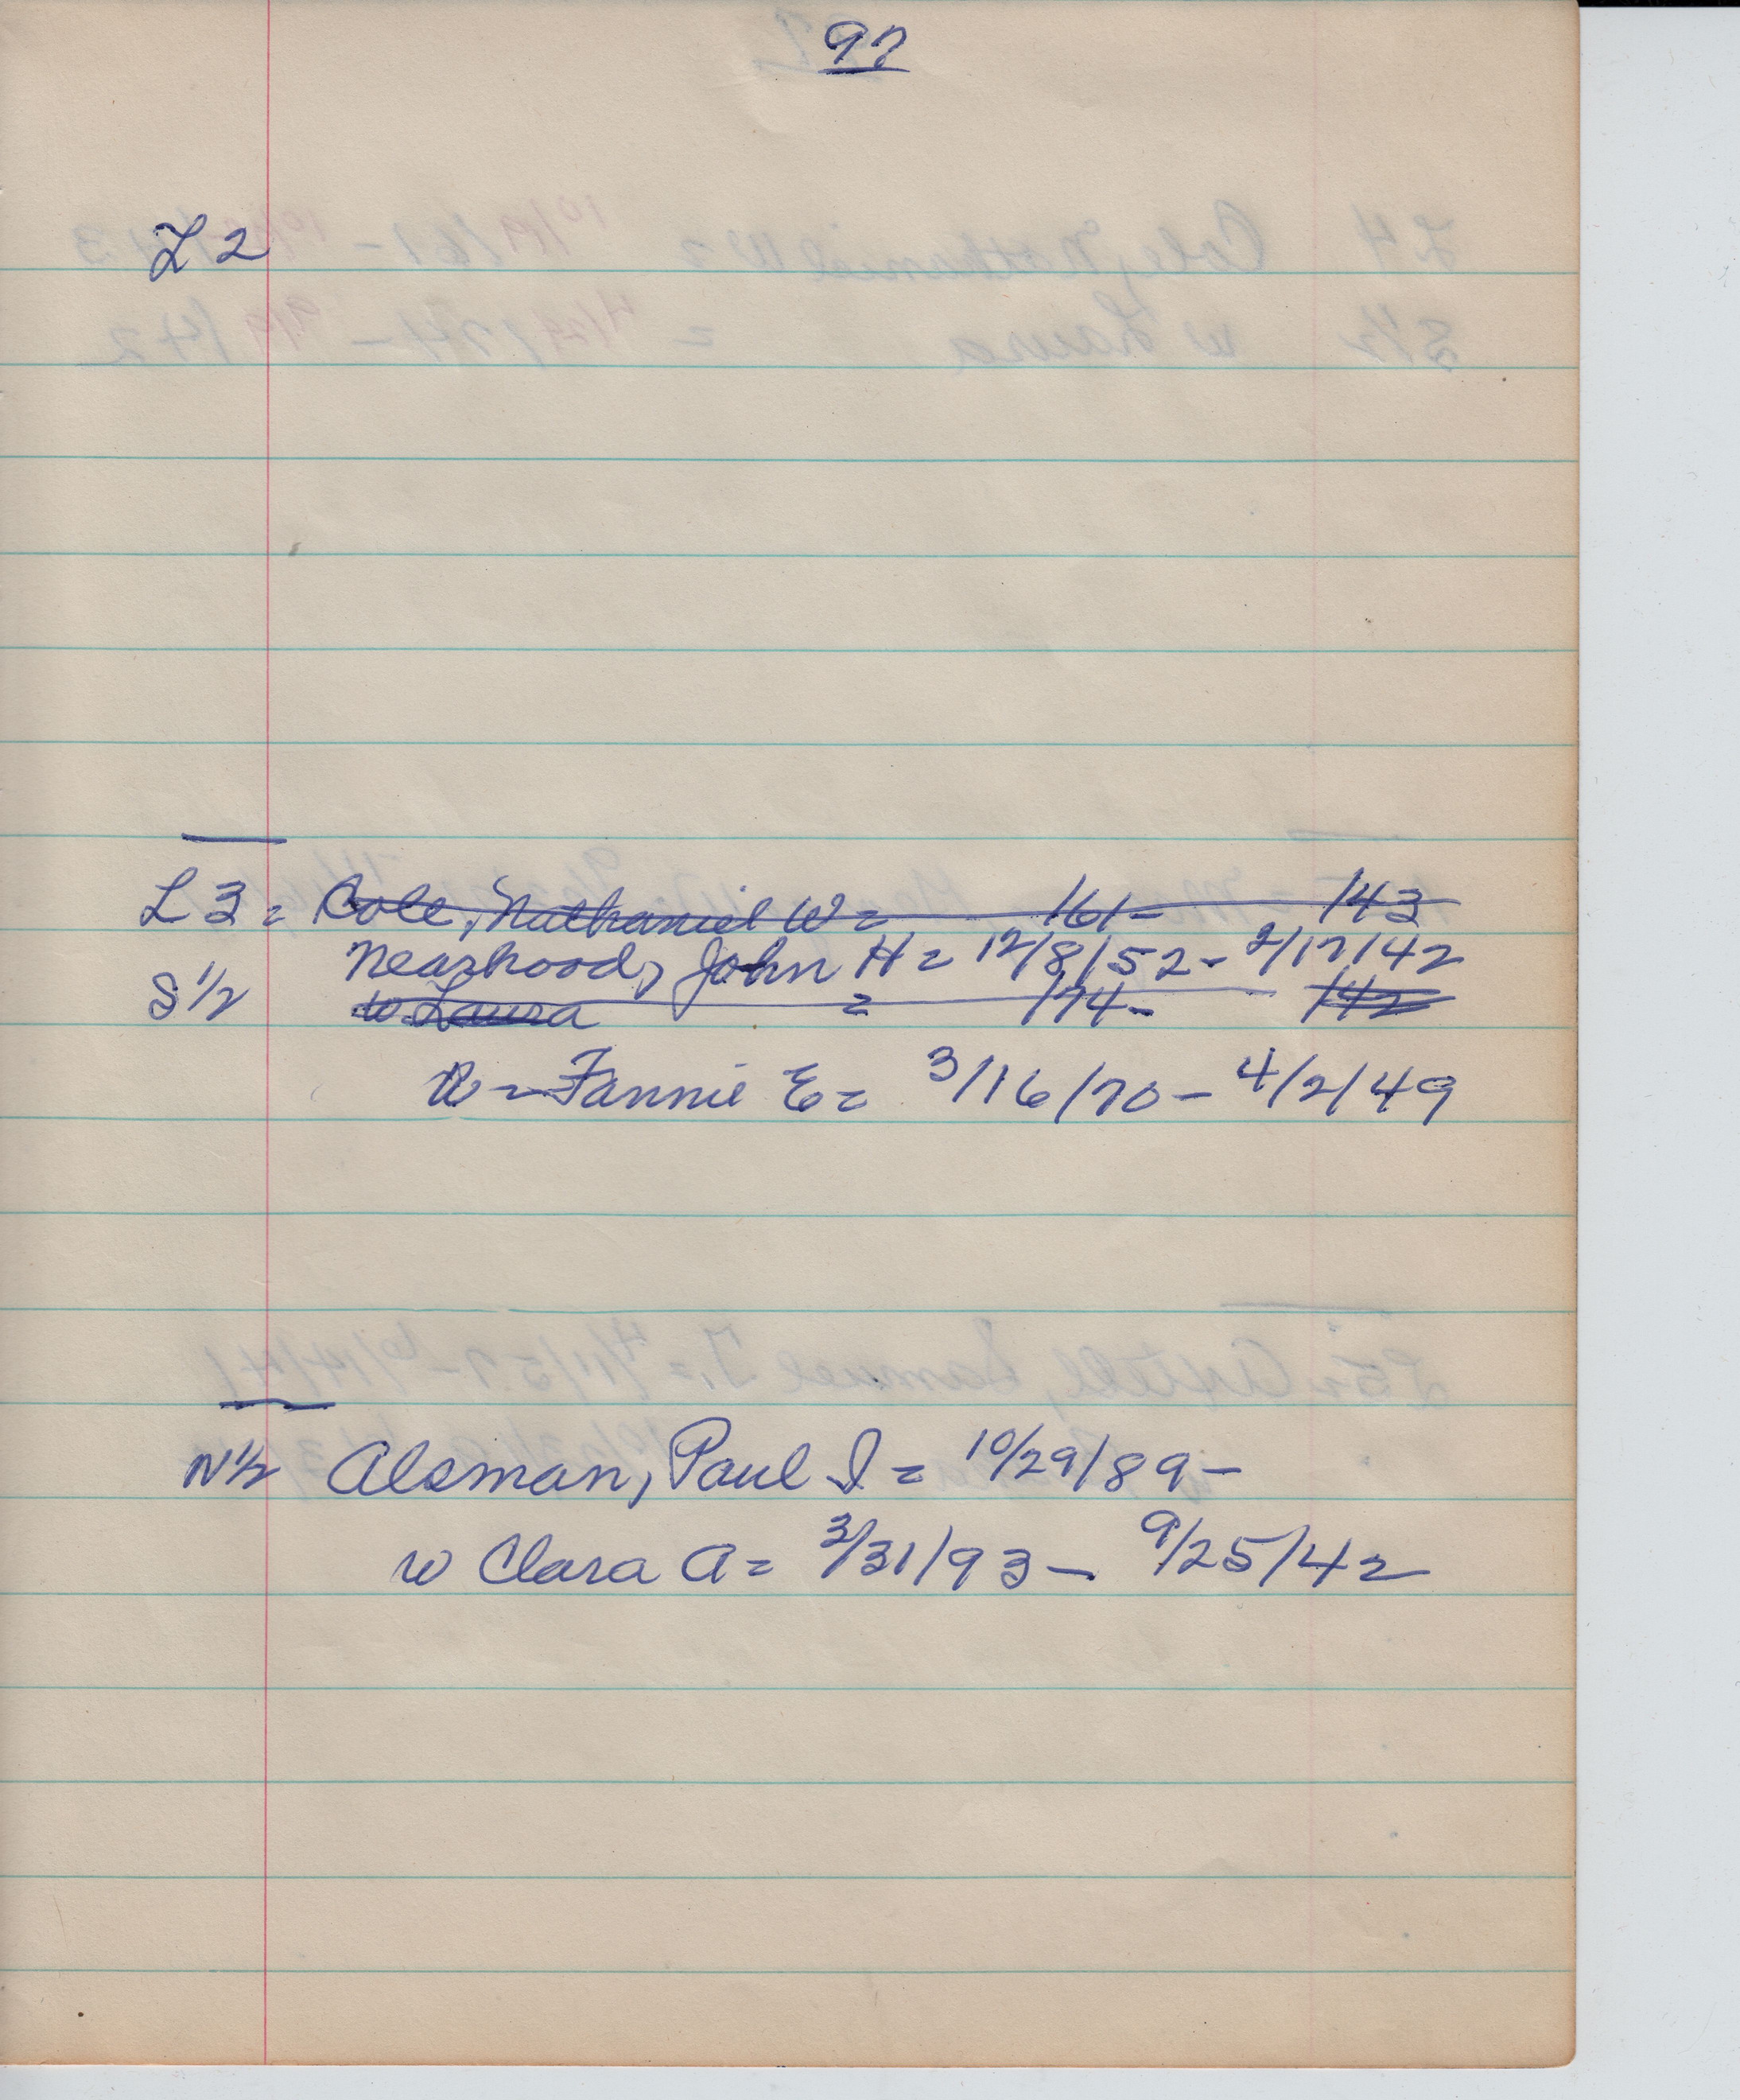 97
L 2
L 3 = Cole, Nathaniel W = /61 - /43
Nearhood, John H = 12/8/52 - 2/17/42
S 1/2 w Laura = /74 - /42
w - Fannie E = 3/16/70 - 4/2/49
N 1/2 Alsman, Paul I = 10/29/89 -
w Clara A = 3/31/93 - 9/25/42